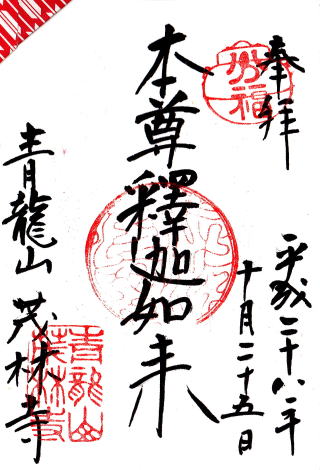 奉拝
平成二十八年
十月二十五日
本尊釋迦如来
青龍山 茂林寺
青龍山
茂林寺